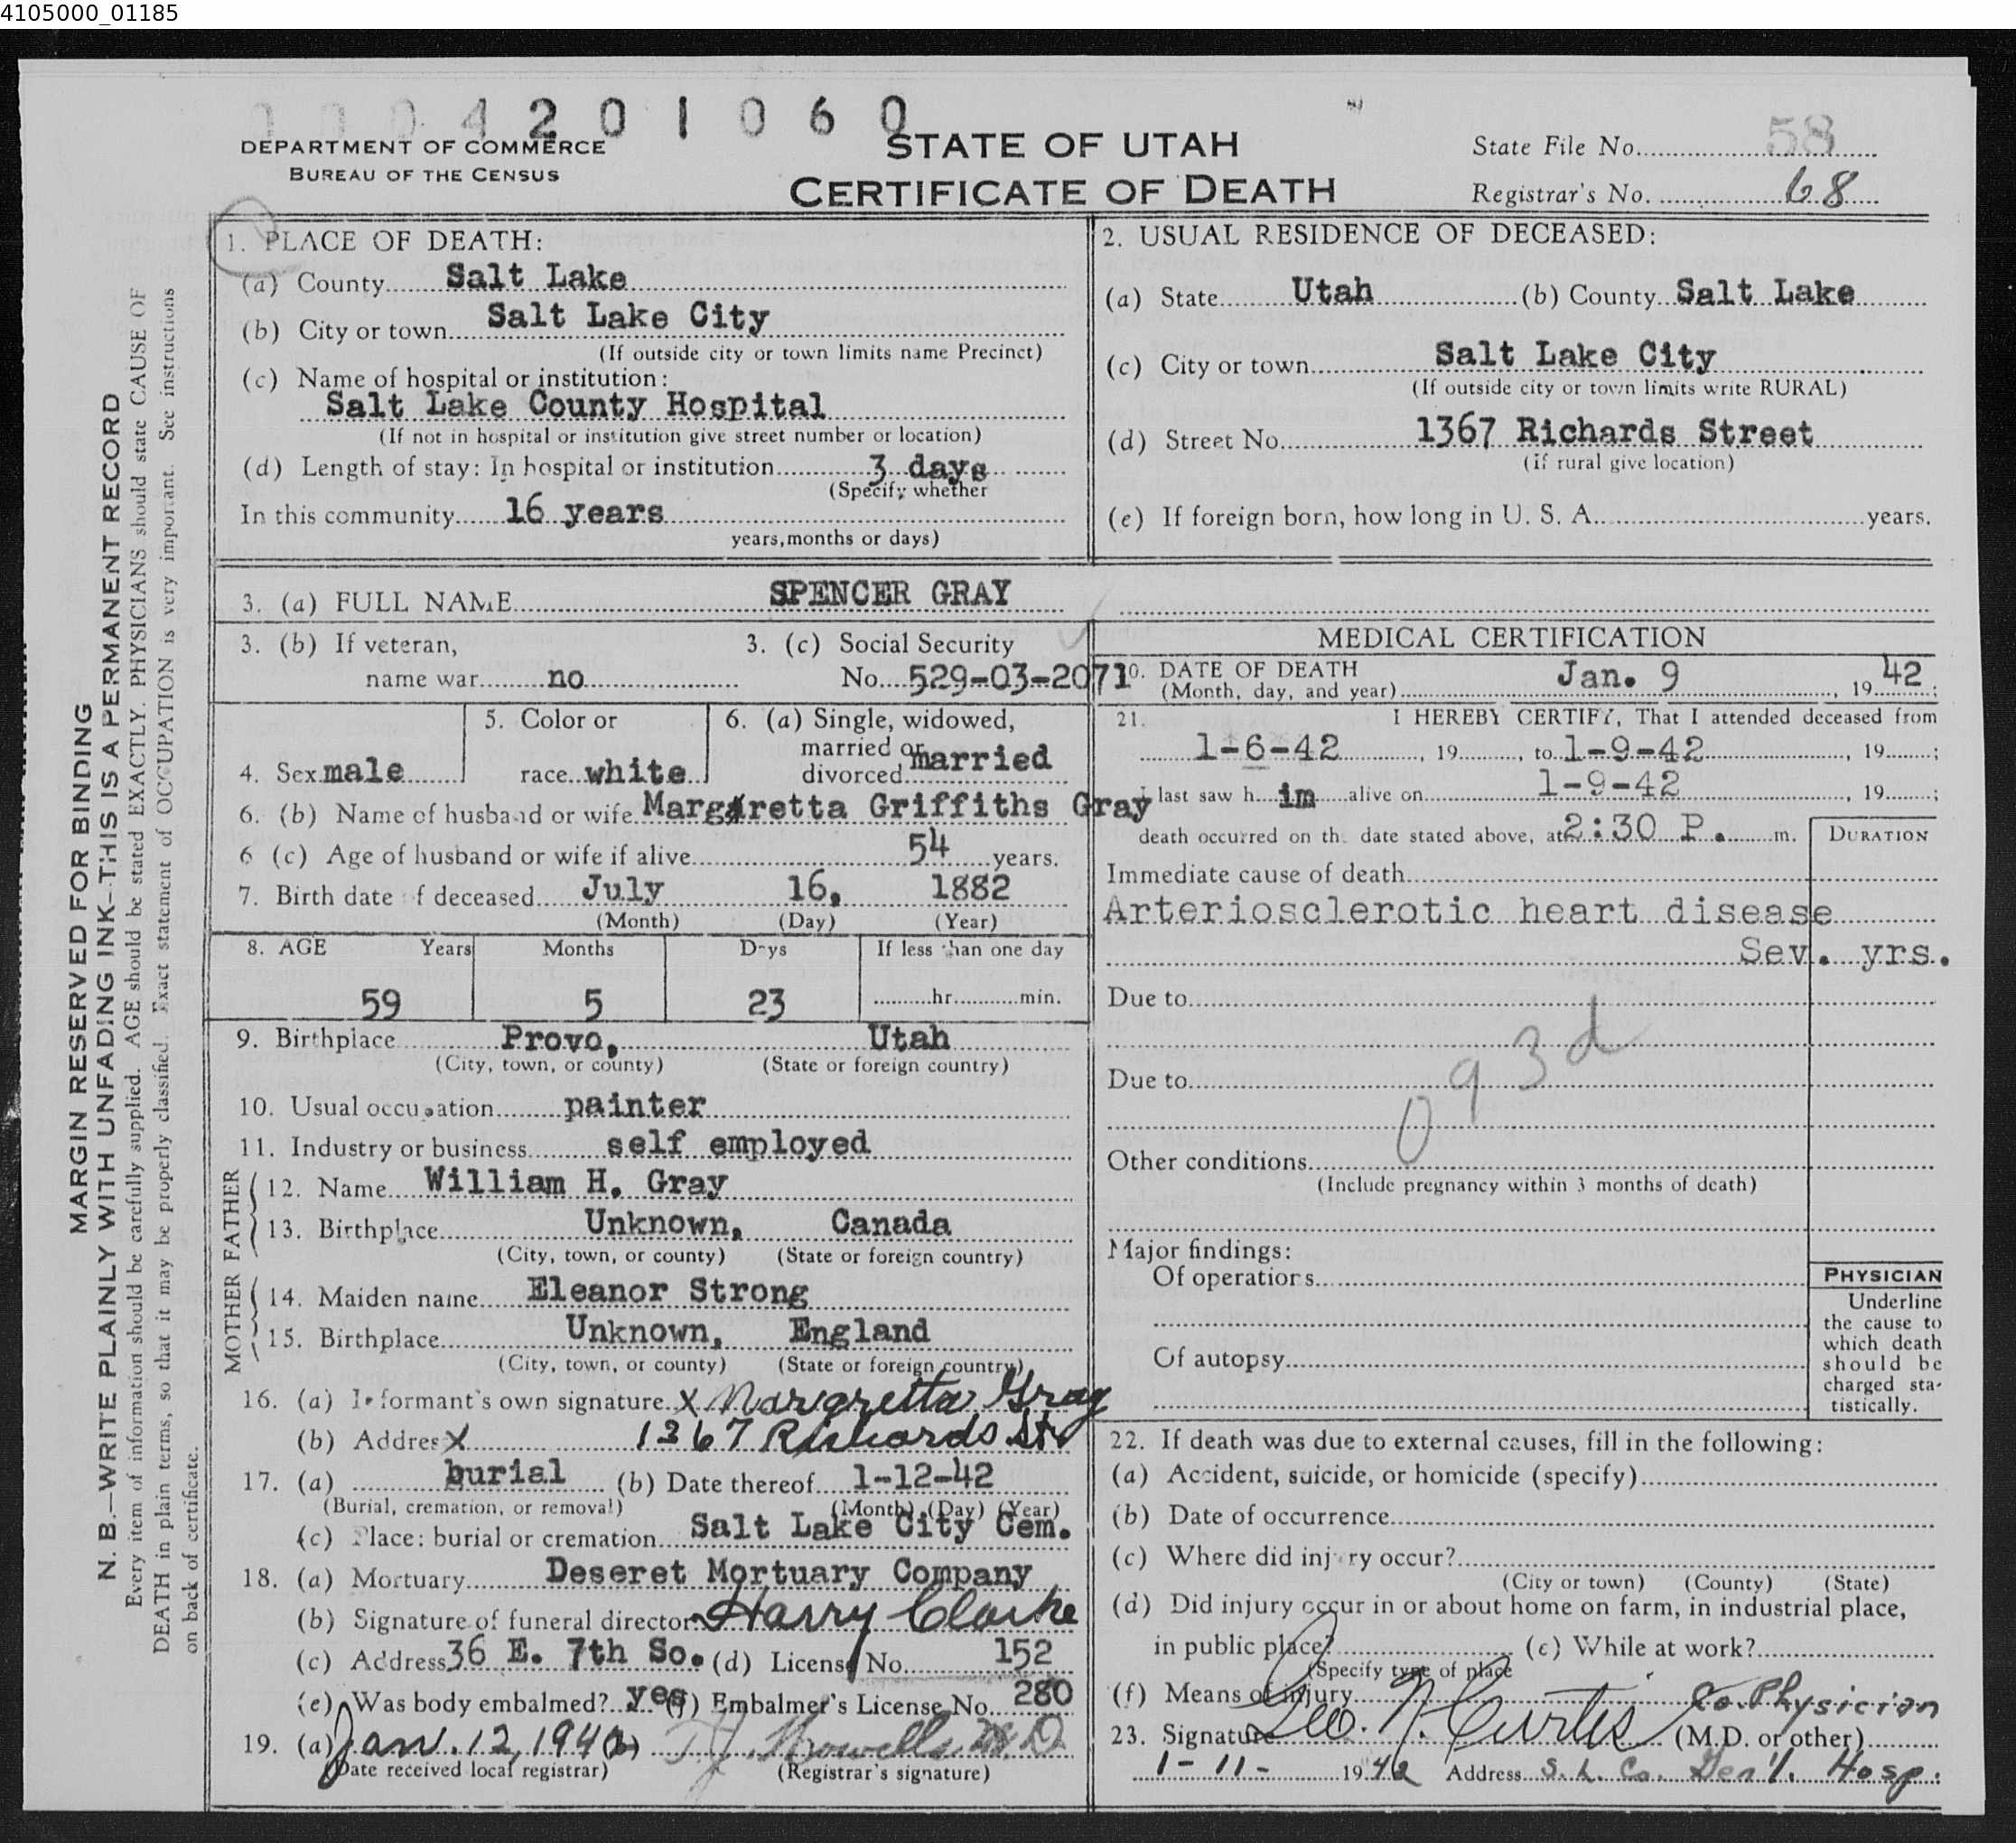 4105000_01185
0004201060
DEPARTMENT OF COMMERCE
BUREAU OF THE CENSUS
STATE OF UTAH
CERTIFICATE OF DEATH
State File No. 58
Registrar's No. 68
MARGIN RESERVED FOR BINDING
N. B.—WRITE PLAINLY WITH UNFADING INK—THIS IS A PERMANENT RECORD
Every item of information should be carefully supplied. AGE should be stated EXACTLY. PHYSICIANS should state CAUSE OF
DEATH in plain terms, so that it may be properly classified. Exact statement of OCCUPATION is very important. See instructions
on back of certificate.
1. PLACE OF DEATH:
(a) County Salt Lake
(b) City or town Salt Lake City
(If outside city or town limits name Precinct)
(c) Name of hospital or institution:
Salt Lake County Hospital
(If not in hospital or institution give street number or location)
(d) Length of stay: In hospital or institution 3 days
(Specify whether
In this community 16 years
years, months or days)
2. USUAL RESIDENCE OF DECEASED:
(a) State Utah (b) County Salt Lake
(c) City or town Salt Lake City
(If outside city or town limits write RURAL)
(d) Street No. 1367 Richards Street
(if rural give location)
(e) If foreign born, how long in U. S. A. years.
3. (a) FULL NAME SPENCER GRAY
3. (b) If veteran, 3. (c) Social Security
name war no No. 529-03-2071
5. Color or 6. (a) Single, widowed,
married or
4. Sex male race white divorced married
6. (b) Name of husband or wife Margaretta Griffiths Gray
6 (c) Age of husband or wife if alive 54 years.
7. Birth date of deceased July 16, 1882
(Month) (Day) (Year)
8. AGE Years Months Days If less than one day
59 5 23 hr. min.
9. Birthplace Provo, Utah
(City, town, or county) (State or foreign country)
10. Usual occupation painter
11. Industry or business self employed
FATHER
12. Name William H. Gray
13. Birthplace Unknown, Canada
(City, town, or county) (State or foreign country)
MOTHER
14. Maiden name Eleanor Strong
15. Birthplace Unknown, England
(City, town, or county) (State or foreign country)
16. (a) Informant's own signature X Margretta Gray
(b) Address X 1367 Richards St
17. (a) burial (b) Date thereof 1-12-42
(Burial, cremation, or removal) (Month) (Day) (Year)
(c) Place: burial or cremation Salt Lake City Cem.
18. (a) Mortuary Deseret Mortuary Company
(b) Signature of funeral director Harry Clarke
(c) Address 36 E. 7th So. (d) License No. 152
(e) Was body embalmed? yes (f) Embalmer's License No. 280
19. (a) Jan. 12, 1942 (b) T.J. Howells M D
(Date received local registrar) (Registrar's signature)
MEDICAL CERTIFICATION
20. DATE OF DEATH
(Month, day, and year) Jan. 9, 1942;
21. I HEREBY CERTIFY, That I attended deceased from
1-6-42, 19, to 1-9-42, 19;
I last saw him alive on 1-9-42, 19;
death occurred on the date stated above, at 2:30 P. m. DURATION
Immediate cause of death
Arteriosclerotic heart disease
Sev. yrs.
Due to
093d
Due to
Other conditions
(Include pregnancy within 3 months of death)
Major findings:
Of operations
Of autopsy
PHYSICIAN
Underline
the cause to
which death
should be
charged sta-
tistically.
22. If death was due to external causes, fill in the following:
(a) Accident, suicide, or homicide (specify)
(b) Date of occurrence
(c) Where did injury occur?
(City or town) (County) (State)
(d) Did injury occur in or about home on farm, in industrial place,
in public place? (e) While at work?
(Specify type of place
(f) Means of injury Co. Physician
23. Signature Geo. N. Curtis (M.D. or other)
1-11- 1942 Address S. L. Co. Gen'l. Hosp.